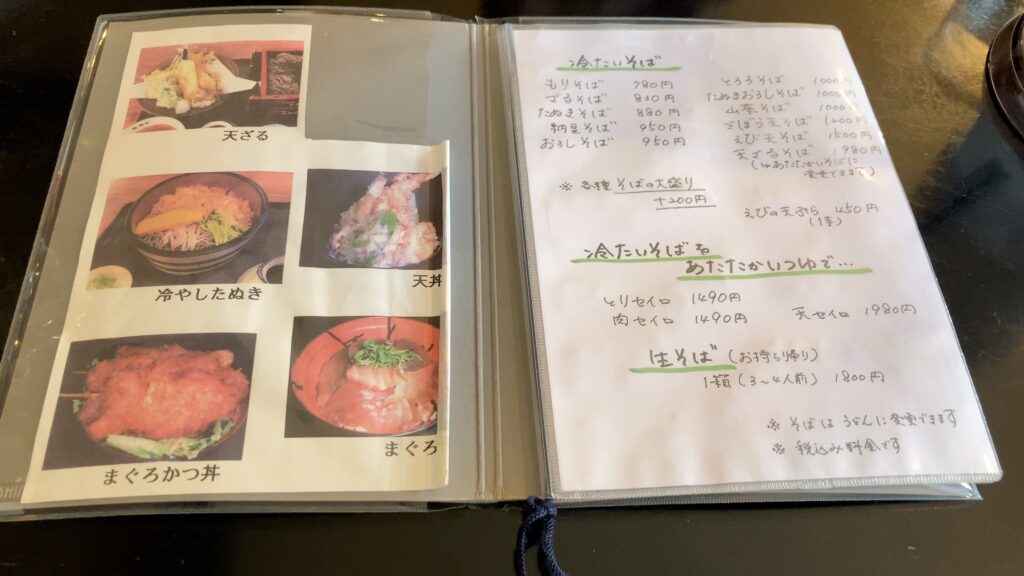 天ざる
冷やしたぬき
天丼
まぐろかつ丼
まぐろ
冷たいそば
もりそば 780円
ざるそば 800円
たぬきそば 880円
納豆そば 950円
おろしそば 950円
とろろそば 1000円
たぬきおろしそば 1000円
山菜そば 1000円
ごぼう天そば 1200円
えび天そば 1500円
天ざるそば 1980円
変更できます)
※ 各種そばの大盛り
+200円
えびの天ぷら 450円
(1本)
冷たいそばを
あたたかいつゆで…
とりセイロ 1490円
肉セイロ 1490円
天セイロ 1980円
生そば (お持ち帰り)
1箱 (3〜4人前) 1800円
※ そばはうどんに変更できます
※ 税込み料金です